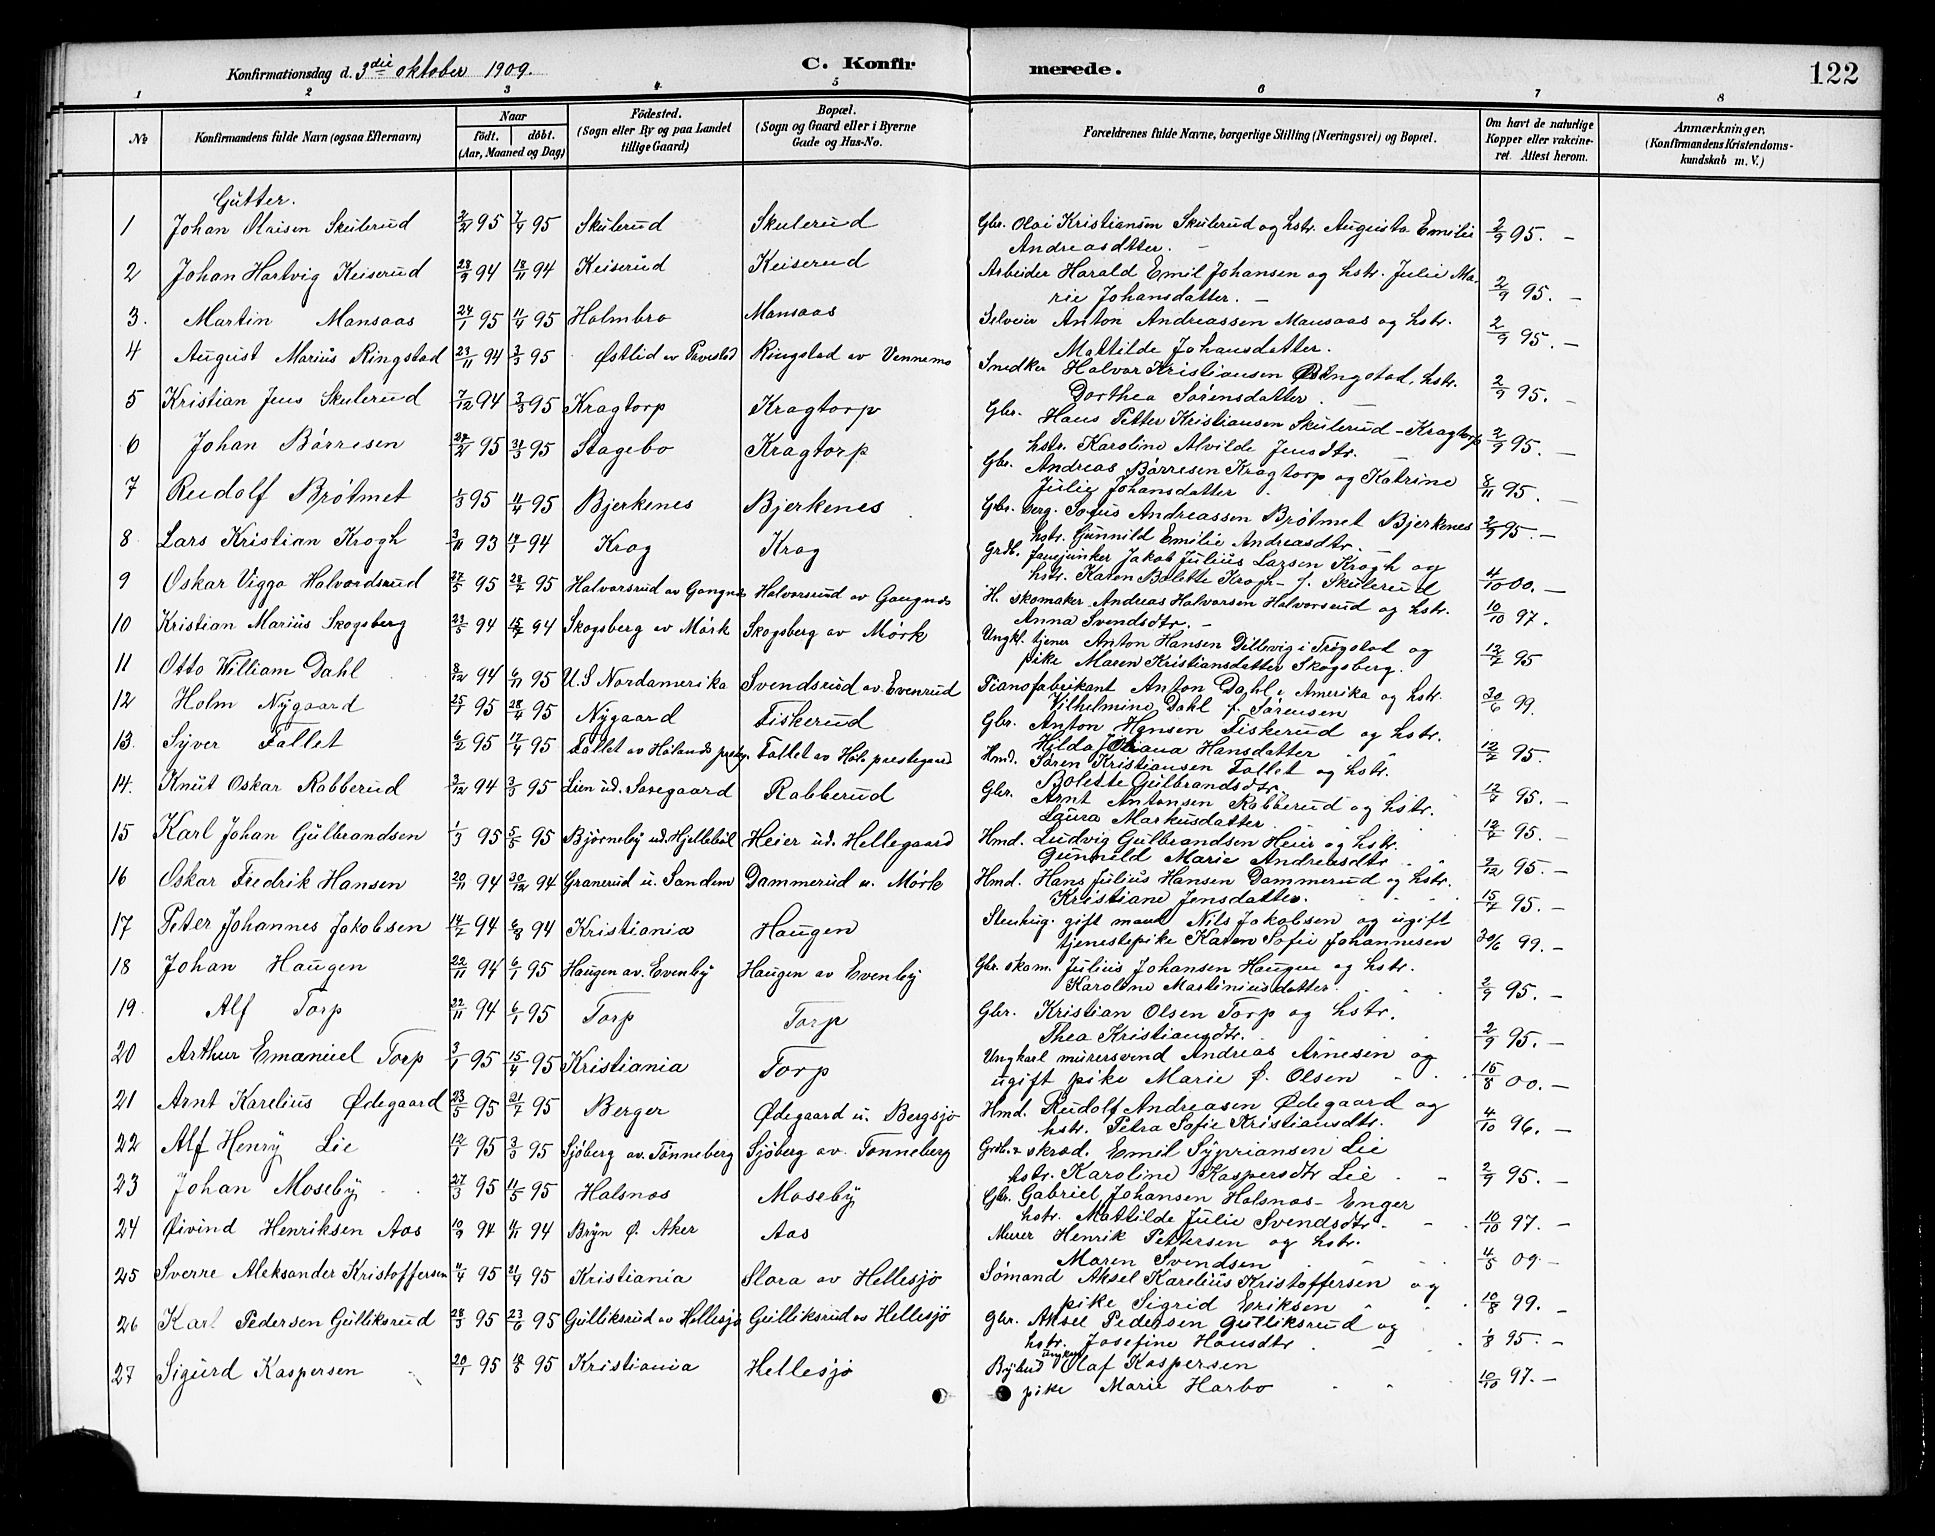 Konfirmationsdag d. 3die oktober 1909. C. Konfirmerede. 122
1 2 3 4 5 6 7 8
№ Konfirmandens fulde Navn (ogsaa Efternavn) Naar født. døbt. (Aar, Maaned og Dag) Fødested. (Sogn eller By og paa Landet tillige Gaard) Bopæl. (Sogn og Gaard eller i Byerne Gade og Hus-No. Forældrenes fulde Navne, borgerlige Stilling (Næringsvei) og Bopæl. Om havt de naturlige Kopper eller vakcineret. Attest herom. Anmærkninger. (Konfirmandens Kristendomskundskab m. V.)
Gutter.
1 Johan Olaisen Skulerud 2/2 95 7/4 95 Skulerud Skulerud Gbr. Olai Kristiansen Skulerud og hstr. Augusta Emilie Andreasdtter. 2/9 95. –
2 Johan Hartvig Keiserud 28/9 94 18/11 94 Keiserud Keiserud Arbeider Harald Emil Johansen og hstr. Julie Marie Johansdatter. 2/9 95. –
3. Martin Mansaas 24/1 95 11/4 95 Holmbro Mansaas Selveier Anton Andreassen Mansaas og hstr. Mattilde Johansdatter. 2/9 95. –
4 August Marius Ringstad 23/11 94 3/3 95 Østlid av Ringstad av Vennemo Snedker Halvor Kristiansen Ringstad, hstr. Dorthea Sørensdatter. 2/9 95. –
5 Kristian Jens Skulerud 7/12 94 3/3 95 Kragtorp Kragtorp Gbr. Hans Petter Kristiansen Skulerud - Kragtorp hstr. Karoline Alvilde Jensdtr. 2/9 95. –
6 Johan Børresen 95 31/3 95 Stagebo Kragtorp Gbr. Andreas Børresen Kragtorp og Katrine Julie Johansdatter. 8/11 95. –
7 Rudolf Brøtmet 1/3 95 11/4 95 Bjerkenes Bjerkenes Gbr. Andreassen Brøtmet Bjerkenes hstr. Gunnild Emilie Andreasdtr. 2/9 95. –
8 Lars Kristian Krogh 3/11 93 14/1 94 Krog Krog Grdb. fanejunker Jakob Julius Larsen Krogh og hstr. Karen Bolette Krogh f. Skulerud 4/10 00. –
9 Oskar Viggo Halvordsrud 27/5 95 28/7 95 Halvorsrud av Gangnæs Halvorsrud av Gangnæs H. skomaker Andreas Halvorsen Halvorsrud og hstr. Anna Svendsdtr. – 10/10 97.
10 Kristian Marius Skogsberg 23/5 94 15/7 94 Skogsberg av Mørk Skogsberg av Mørk Ungkl. tjener Anton Hansen Dillevig i Trøgstad og pike Maren Kristiansdatter Skogsberg. 12/7 95
11 Otto William Dahl 8/12 94 6/11 95 U.S Nordamerika Svendsrud av Evenrud Pianofabrikant Anton Dahl i Amerika og hstr. Vilhelmine Dahl f. Sørensen 30/6 99.
12 Holm Nygaard 25/1 95 28/4 95 Nygaard Fiskerud Gbr. Anton Hansen Fiskerud og hstr. Hilda Hansdatter
13. Syver Fallet 6/2 95 17/4 95 Fallet av Hølands prestg. Fallet av Høl. prestegaard Hmd. Søren Kristiansen Fallet og hstr. Bolette Gulbrandsdtr. 12/7 95.
14. Knut Oskar Rabberud 2/12 94 3/3 95 Lien ud. Soregaard Rabberud Gbr. Arnt Antonsen Rabberud og hstr. Laura Markusdatter 12/7 95. –
15 Karl Johan Gulbrandsen 1/3 95 5/5 95 Bjørneby ud. Hjellebøl Heier ud. Hellegaard Hmd. Ludvig Gulbrandsen Heier og hstr. Gunnild Marie Andreasdtr. 12/7 95. –
16 Oskar Fredrik Hansen 20/11 94 30/12 94 Granerud u. Sandem Dammerud u. Mørk Hmd. Hans Julius Hansen Dammerud og hstr. Kristiane Jensdatter. 2/12 95. –
17 Peter Johannes Jakobsen 14/7 94 6/8 94 Kristiania Haugen Stenhug. gift mand Nils Jakobsen og ugift tjenestepike Karen Sofie Johannesen 15/7 95. –
18 Johan Haugen 22/11 94 6/1 95 Haugen av. Evenby Haugen av Evenby Gbr. skom. Julius Johansen Haugen og hstr. Karoline Martiniusdatter. 30/6 99. –
19. Alf Torp 22/11 94 6/1 95 Torp Torp Gbr. Kristian Olsen Torp og hstr. Thea Kristiansdtr. 2/9 95. –
20 Arthur Emanuel Torp 3/1 95 15/4 95 Kristiania Torp Ungkarl murersvend Andreas Arnesen og ugift pike Marie Ø. Olsen 2/9 95. –
21 Arnt Karelius Ødegaard 23/5 95 21/7 95 Berger Ødegaard u. Bergsjø Hmd. Rudolf Andreasen Ødegaard og hstr. Petra Sofie Kristiansdtr. 15/8 00. –
22 Alf Henry Lie 12/1 95 3/3 95 Sjøberg av. Tønneberg Sjøberg av. Tønneberg Grdb. skræd. Emil Sypriansen Lie hstr. Karoline Kaspersdtr Lie 4/10 96. –
23 Johan Moseby 27/3 95 11/5 95 Holsnos Moseby Gbr. Gabriel Johansen Holsnos - Enger hstr. Mattilde Julie Svendsdtr. 2/9 95. –
24 Øivind Henriksen Aas 10/9 94 11/11 94 Bryn Ø. Aker Aas Murer Henrik Pettersen og hstr. Maren Svendsen 10/10 97. –
25 Sverre Aleksander Kristoffersen 11/4 95 21/9 95 Kristiania Slora av Hellesjø Sømand Aksel Karelius Kristoffersen og pike Sigrid Eriksen 4/5 09 –
26 Karl Pedersen Gulliksrud 28/3 95 23/6 95 Gulliksrud av Hellesjø Gulliksrud av Hellesjø Gbr. Aksel Pedersen Gulliksrud og hstr. Josefine Hansdtr. 10/8 99. –
1/8 95. –
27 Sigurd Kaspersen 20/1 95 18/8 95 Kristiania Hellesjø Bybud ungkar Olaf Kaspersen pike Marie Harbo 10/10 97. –